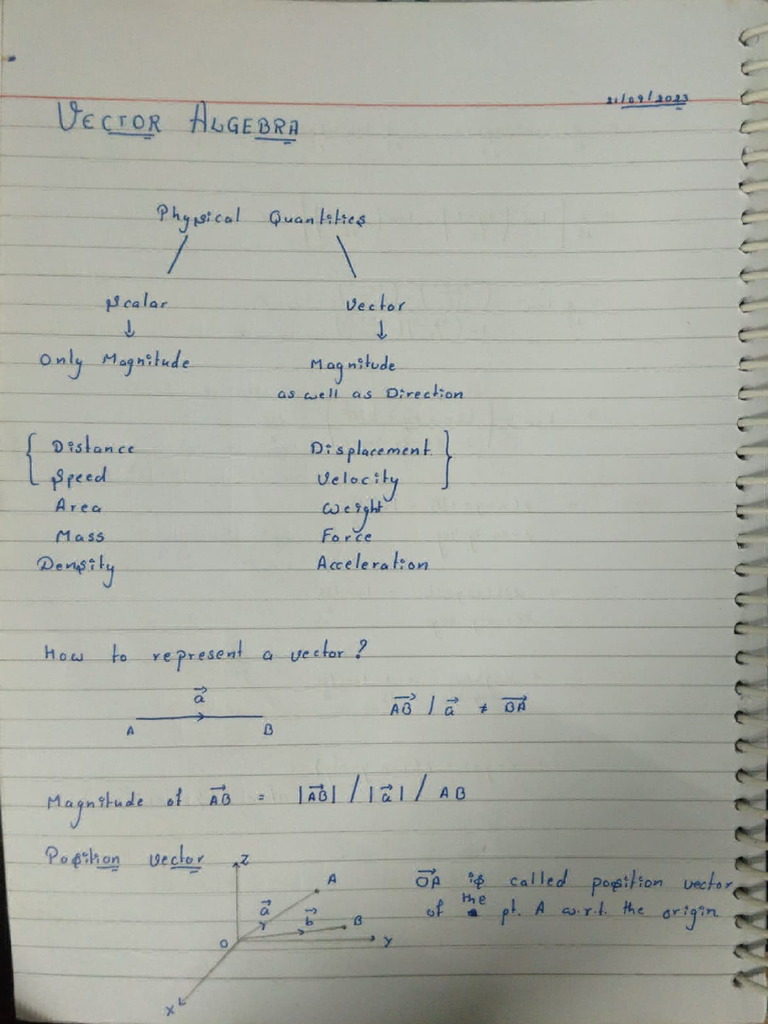 21/09/2023
VECTOR ALGEBRA
Physical Quantities
Scalar Vector
↓ ↓
Only Magnitude Magnitude
as well as Direction
{ Distance Displacement }
Speed Velocity
Area Weight
Mass Force
Density Acceleration
How to represent a vector?
a⃗
A B AB⃗ / a⃗ ≠ BA⃗
Magnitude of AB⃗ = |AB⃗| / |a⃗| / AB
Position vector
Z
A
a⃗
b⃗ B
O Y
X
OA⃗ is called position vector
of the pt. A w.r.t. the origin